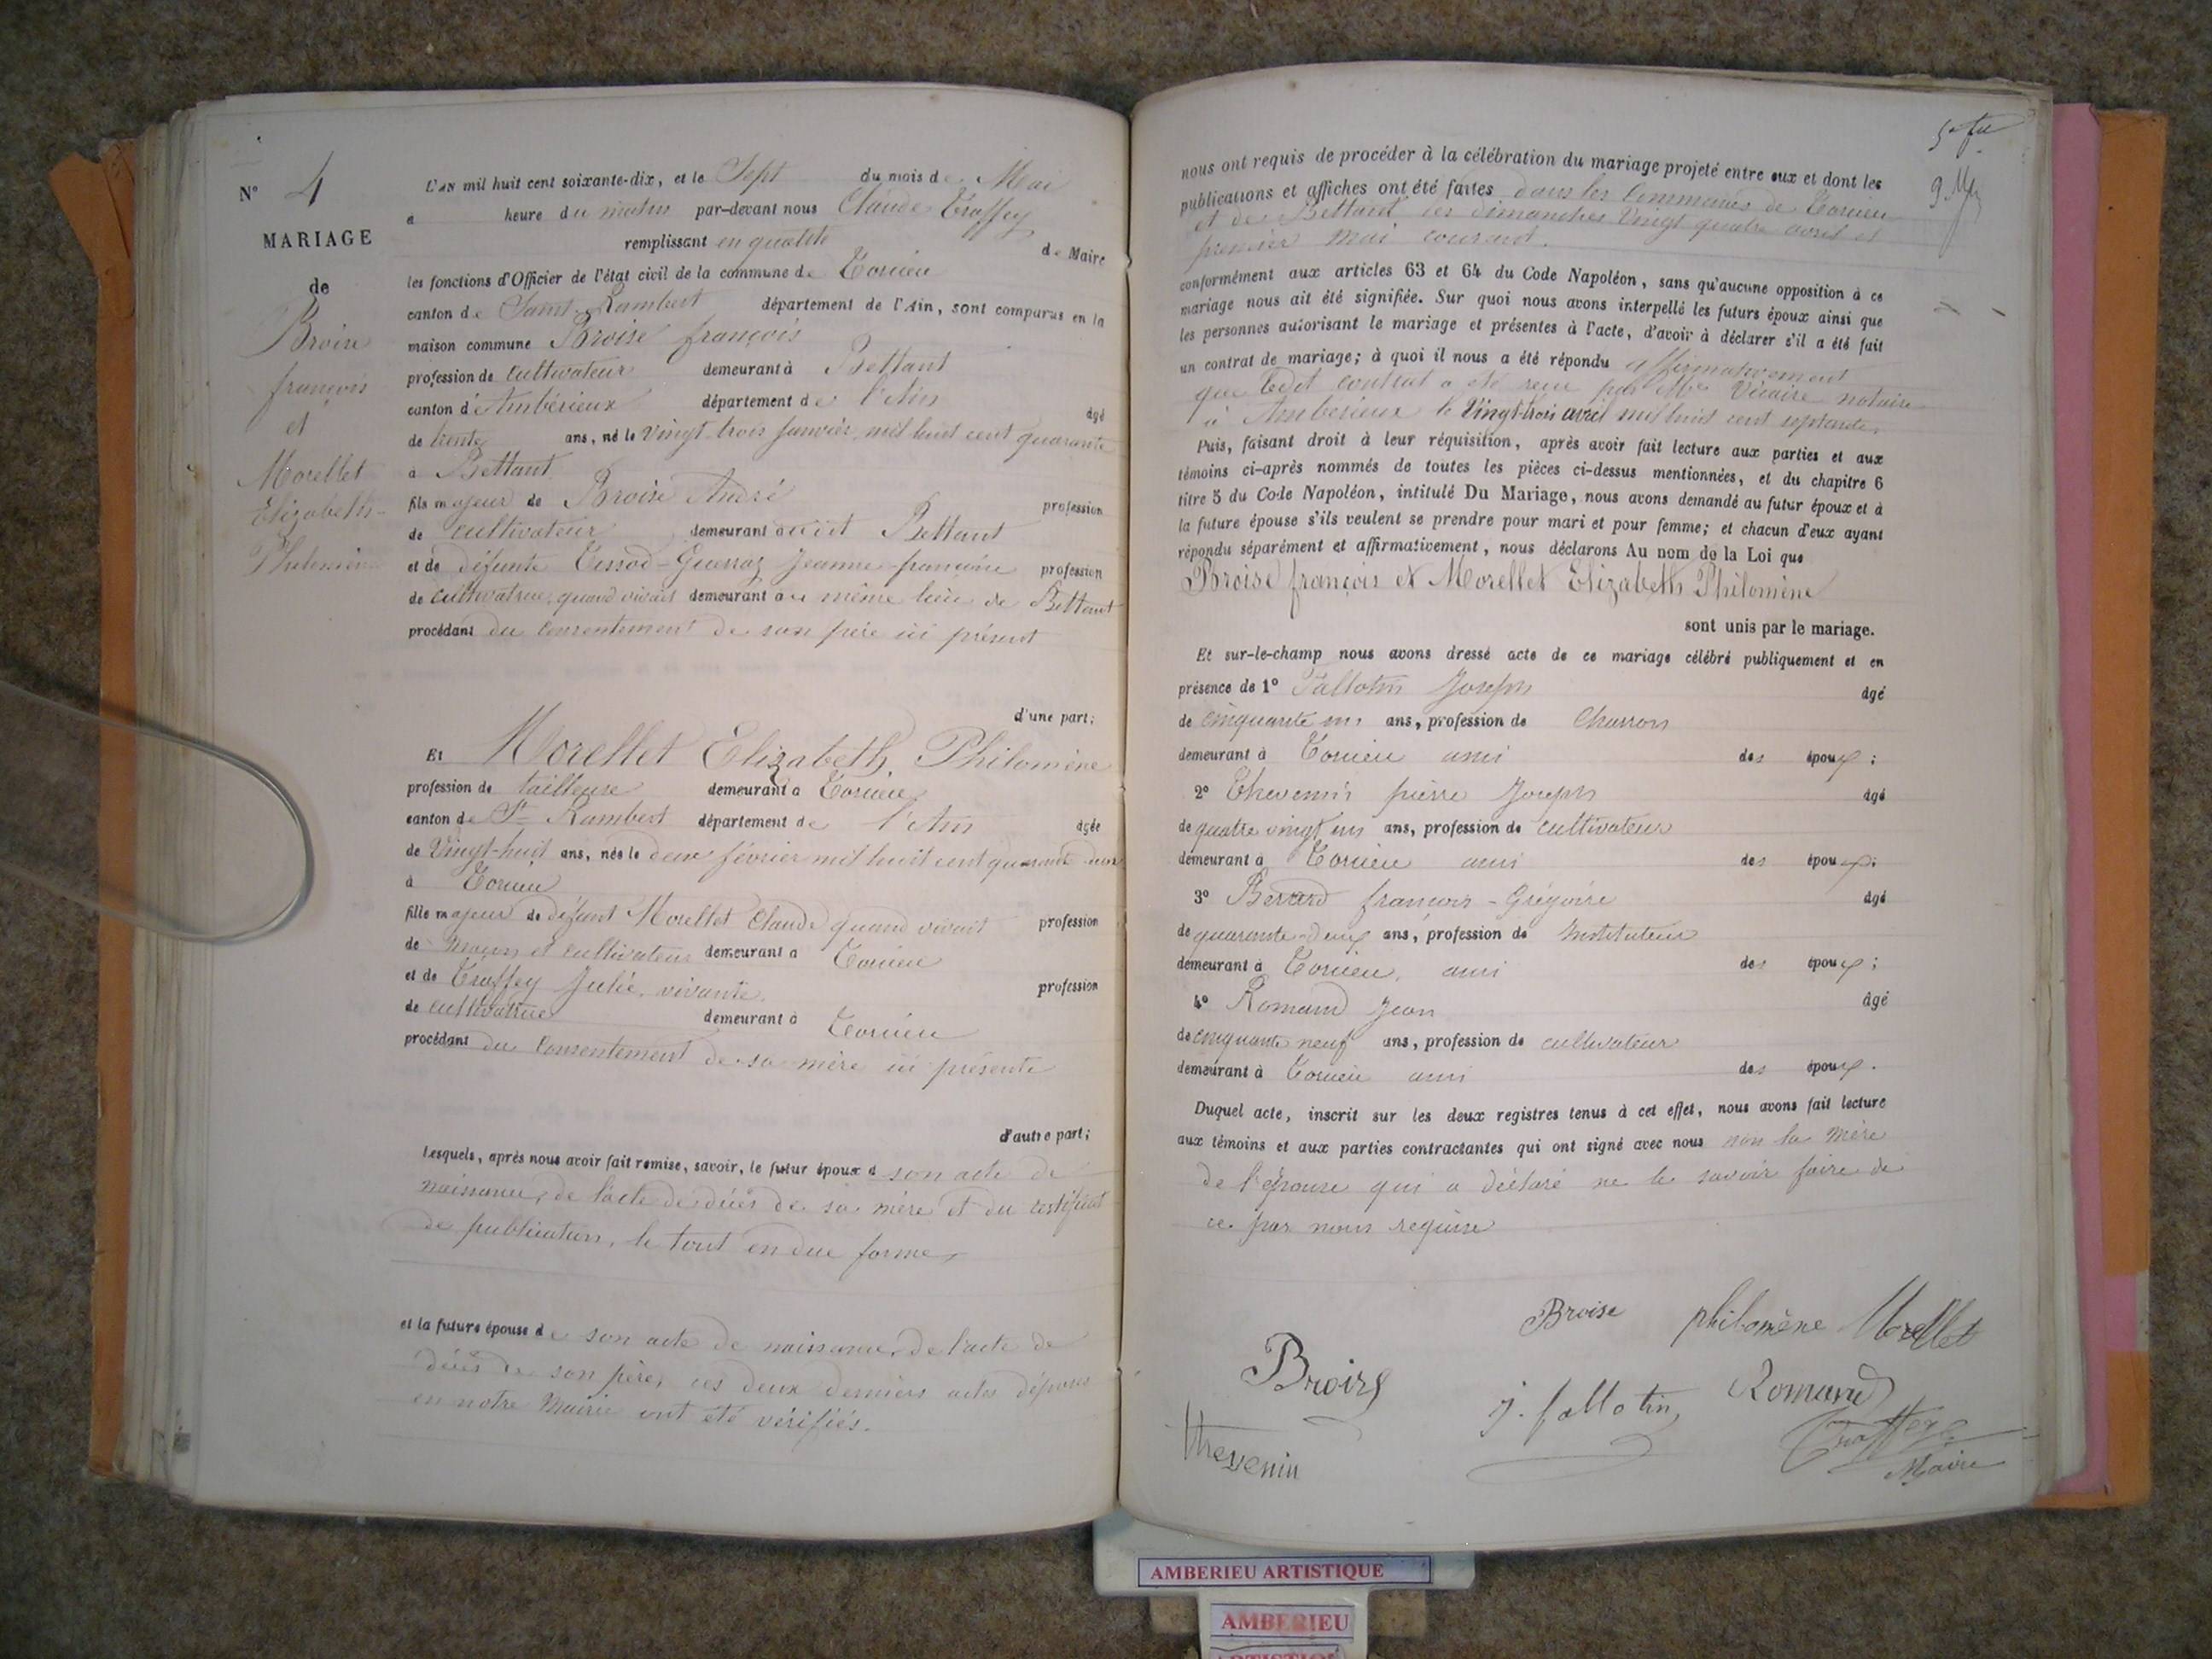 N° 4
MARIAGE
de
Broise
françois
et
Morellet
Elizabeth-
Philomène
L'AN mil huit cent soixante-dix, et le Sept du mois de Mai
a heure du matin par-devant nous Claude Traffey
remplissant en qualité de Maire
les fonctions d'Officier de l'état civil de la commune de Torcieu
canton de Saint-Rambert département de l'Ain, sont comparus en la
maison commune Broise françois
profession de cultivateur demeurant à Bettant
canton d'Ambérieux département de l'Ain âgé
de trente ans, né le vingt-trois Janvier mil huit cent quarante
a Bettant
fils majeur de Broise André profession
de cultivateur demeurant audit Bettant
et de défunte Tissod-Guerraz Jeanne-françoise profession
de cultivatrice, quand vivait demeurant au même lieu de Bettant
procédant du consentement de son père ici présent
d'une part;
Et Morellet Elizabeth, Philomène
profession de tailleuse demeurant a Torcieu
canton de St Rambert département de l'Ain âgée
de Vingt-huit ans, née le deux février mil huit cent quarante deux
à Torcieu
fille majeur de défunt Morellet Claude quand vivait profession
de Maçon et cultivateur demeurant a Torcieu
et de Traffey Julie vivante, profession
de cultivatrice demeurant à Torcieu
procédant du Consentement de sa mère ici présente
d'autre part;
Lesquels, après nous avoir fait remise, savoir, le futur époux d son acte de
naissance, de l'acte de décès de sa mère et du certificat
de publication, le tout en due forme,
et la future épouse de son acte de naissance, de l'acte de
décès de son père, ces deux derniers actes déposés
en notre Mairie ont été vérifiés.
nous ont requis de procéder à la célébration du mariage projeté entre eux et dont les
publications et affiches ont été faites dans les Communes de Torcieu
et de Bettant les dimanches Vingt quatre avril et
premier Mai courant.
conformément aux articles 63 et 64 du Code Napoléon, sans qu'aucune opposition à ce
mariage nous ait été signifiée. Sur quoi nous avons interpellé les futurs époux ainsi que
les personnes autorisant le mariage et présentes à l'acte, d'avoir à déclarer s'il a été fait
un contrat de mariage; à quoi il nous a été répondu affirmativement
que ledit contrat a été reçu par Me Vicaire notaire
à Ambérieux le Vingt-trois avril mil huit cent septante.
Puis, faisant droit à leur réquisition, après avoir fait lecture aux parties et aux
témoins ci-après nommés de toutes les pièces ci-dessus mentionnées, et du chapitre 6
titre 5 du Code Napoléon, intitulé Du Mariage, nous avons demandé au futur époux et à
la future épouse s'ils veulent se prendre pour mari et pour femme; et chacun d'eux ayant
répondu séparément et affirmativement, nous déclarons Au nom de la Loi que
Broise françois et Morellet Elizabeth Philomène
sont unis par le mariage.
Et sur-le-champ nous avons dressé acte de ce mariage célébré publiquement et en
présence de 1° Fallotin Joseph âgé
de cinquante un ans, profession de Charron
demeurant à Torcieu ami des époux;
2° Thevenin pierre Joseph âgé
de quatre vingt un ans, profession de cultivateur
demeurant à Torcieu ami des époux;
3° Berard françois-Grégoire âgé
de quarante-deux ans, profession de Instituteur
demeurant à Torcieu, ami des époux;
4° Romand Jean âgé
de cinquante neuf ans, profession de cultivateur
demeurant à Torcieu ami des époux.
Duquel acte, inscrit sur les deux registres tenus à cet effet, nous avons fait lecture
aux témoins et aux parties contractantes qui ont signé avec nous non la Mère
de l'épouse qui a déclaré ne le savoir faire de
ce par nous requise
Broise philomène Morellet
Broise
j. fallotin Romand
Thevenin
Traffey
Maire
AMBERIEU ARTISTIQUE
AMBERIEU
ARTISTIQUE